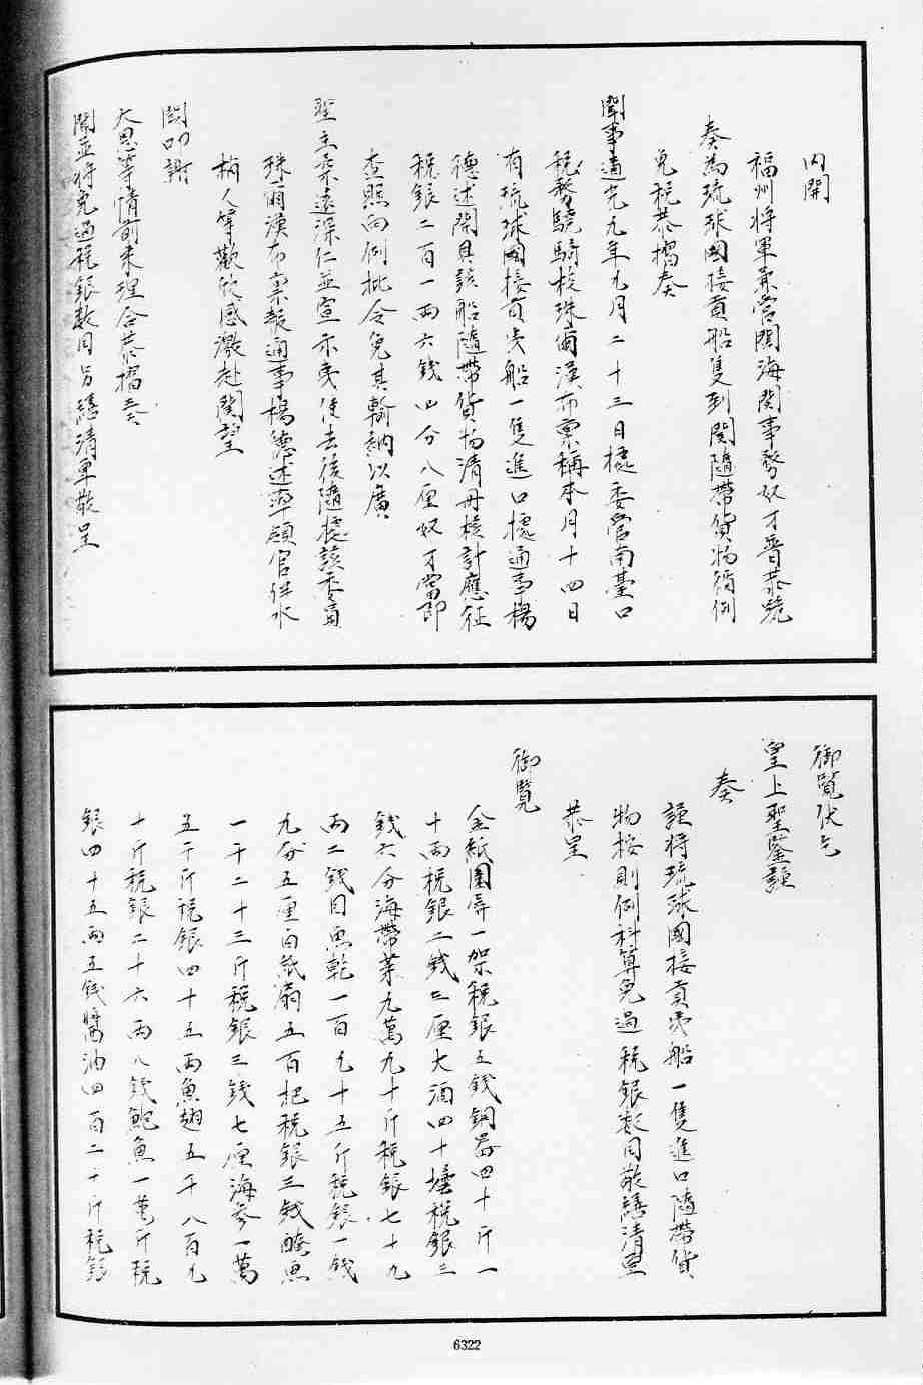 內開
福州將軍兼管閩海關事務奴才晉恭跪
奏為琉球國接貢船隻到關隨帶貨物循例
免稅恭摺奏
聞事道光九年九月二十三日據委管南臺口
稅務驍騎校珠爾漢布稟稱本月十四日
有琉球國接貢夷船一隻進口據通事楊
德述開具該船隨帶貨物清冊核計應征
稅銀二百一兩六錢四分八厘奴才當即
查照向例批令免其輸納以廣
聖主柔遠深仁並宣示夷使去後隨據該委員
珠爾漢布稟報通事楊德述率領官伴水
梢人等歡欣感激赴關望
闕叩謝
天恩等情前來理合恭摺奏
聞並將免過稅銀數目另繕清單敬呈
御覽伏乞
皇上聖鑒謹
奏
謹將琉球國接貢夷船一隻進口隨帶貨
物按則例科算免過稅銀數目敬繕清單
恭呈
御覽
金紙圍屏一架稅銀五錢銅器四十斤一
十兩稅銀二錢三厘大酒四十壜稅銀三
錢六分海帶菜九萬九十斤稅銀七十九
兩二錢目魚乾一百七十五斤稅銀一錢
九分五厘白紙扇五百把稅銀三錢醃魚
一千二十三斤稅銀三錢七厘海參一萬
五千斤稅銀四十五兩魚翅五千八百九
十斤稅銀二十六兩八錢鮑魚一萬斤稅
銀四十五兩五錢醬油四百二十斤稅銀
6322